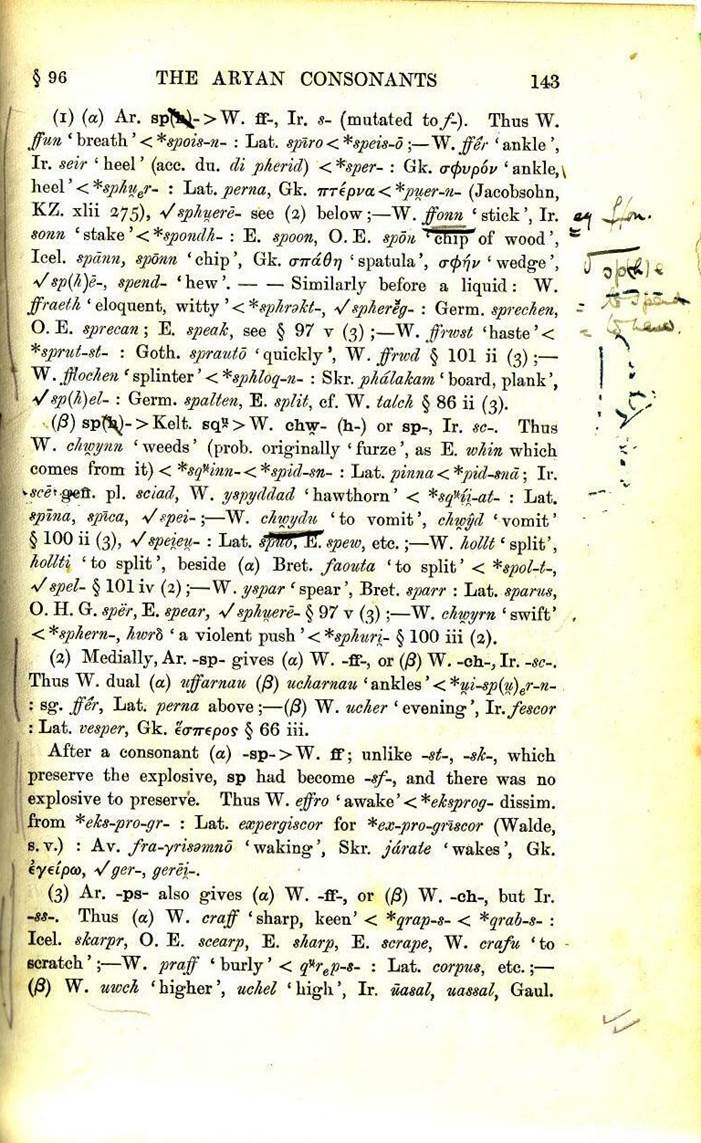 § 96 THE ARYAN CONSONANTS 143
(1) (α) Ar. sp(h)-> W. ff-, Ir. s- (mutated to f-). Thus W.
ffun ‘breath’ < *spois-n- : Lat. spīro < *speis-ō ;—W. ffêr ‘ankle’,
Ir. seir ‘heel’ (acc. du. di pherid) < *sper- : Gk. σφυρόν ‘ankle,
heel’ < *sphu̯ₑr- : Lat. perna, Gk. πτέρνα < *pu̯er-n- (Jacobsohn,
KZ. xlii 275), √sphu̯erē- see (2) below ;—W. ffonn ‘stick’, Ir. eg ffon.
sonn ‘stake’ < *spondh- : E. spoon, O. E. spōn ‘chip of wood’,
Icel. spānn, spōnn ‘chip’, Gk. σπάθη ‘spatula’, σφήν ‘wedge’, √ sp(h)e
√sp(h)ē-, spend- ‘hew’. — — Similarly before a liquid : W. = to spend
ffraeth ‘eloquent, witty’ < *sphrəkt-, √spherē̆g- : Germ. sprechen, = to hew.
O. E. sprecan ; E. speak, see § 97 v (3) ;—W. ffrwst ‘haste’ <
*sprut-st- : Goth. sprautō ‘quickly’, W. ffrwd § 101 ii (3) ;—
W. fflochen ‘splinter’ < *sphloq-n- : Skr. phálakam ‘board, plank’,
√sp(h)el- : Germ. spalten, E. split, cf. W. talch § 86 ii (3).
(β) sp(h)-> Kelt. sqᵘ̯ > W. chw̯- (h-) or sp-, Ir. sc-. Thus
W. chw̯ynn ‘weeds’ (prob. originally ‘furze’, as E. whin which
comes from it) < *sqᵘ̯inn- < *spid-sn- : Lat. pinna < *pid-snā ; Ir.
scē gen. pl. sciad, W. yspyddad ‘hawthorn’ < *sqᵘ̯íi̯-at- : Lat.
spīna, spīca, √spei- ;—W. chw̯ydu ‘to vomit’, chw̯ŷd ‘vomit’
§ 100 ii (3), √spei̯eu̯- : Lat. spuo, E. spew, etc. ;—W. hollt ‘split’,
hollti ‘to split’, beside (α) Bret. faouta ‘to split’ < *spol-t-,
√spel- § 101 iv (2) ;—W. yspar ‘spear’, Bret. sparr : Lat. sparus,
O. H. G. spër, E. spear, √sphu̯erē- § 97 v (3) ;—W. chw̯yrn ‘swift’
< *sphern-, hwrδ ‘a violent push’ < *sphuri̯- § 100 iii (2).
(2) Medially, Ar. -sp- gives (α) W. -ff-, or (β) W. -ch-, Ir. -sc-.
Thus W. dual (α) uffarnau (β) ucharnau ‘ankles’ < *u̯i-sp(u̯)ₑr-n-
: sg. ffêr, Lat. perna above ;—(β) W. ucher ‘evening’, Ir. fescor
: Lat. vesper, Gk. ἕσπερος § 66 iii.
After a consonant (α) -sp-> W. ff ; unlike -st-, -sk-, which
preserve the explosive, sp had become -sf-, and there was no
explosive to preserve. Thus W. effro ‘awake’ < *eksprog- dissim.
from *eks-pro-gr- : Lat. expergiscor for *ex-pro-grīscor (Walde,
s. v.) : Av. fra-γrisəmnō ‘waking’, Skr. járate ‘wakes’, Gk.
ἐγείρω, √ger-, gerēi̯-.
(3) Ar. -ps- also gives (α) W. -ff-, or (β) W. -ch-, but Ir.
-ss-. Thus (α) W. craff ‘sharp, keen’ < *qrap-s- < *qrab-s- :
Icel. skarpr, O. E. scearp, E. sharp, E. scrape, W. crafu ‘to
scratch’ ;—W. praff ‘burly’ < qᵘ̯rₑp-s- : Lat. corpus, etc. ;—
(β) W. uwch ‘higher’, uchel ‘high’, Ir. ūasal, uassal, Gaul.